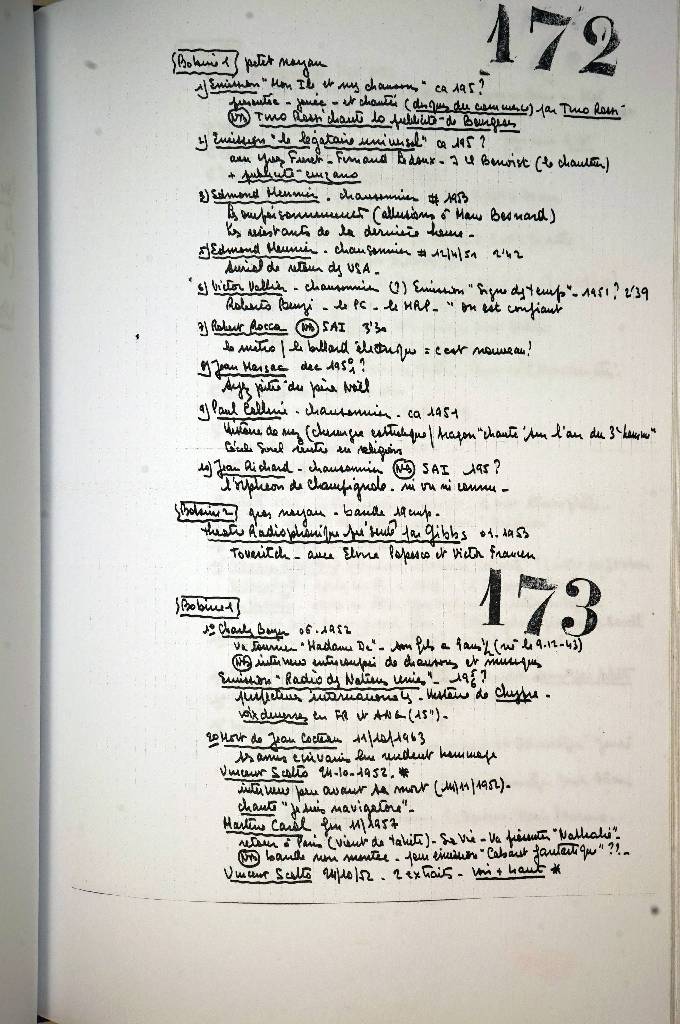 172
Bobine 1 petit noyau
1) Emission "Mon Ile et mes chansons" ca 195?
présentée - jouée - et chantée (disques du commerce) par Tino Rossi
NB Tino Rossi chante la publicité de Bourgeois
2) Emission "le légataire universel" ca 195?
avec Yves Furet - Fernand Ledoux - J M Benoist (le chanteur)
+ publicité cinzano
3) Edmond Meunier - chansonnier # 1953
(allusions à Marc Besnard)
Les résistants de la dernière heure -
5) Edmond Meunier - chansonnier # 12/4/51 2'42
de retour des USA -
6) Victor Vallier - chansonnier (?) Emission "Signe des temps" - 1951? 2'39
Roberto Benzi - le PC - le MRP - " on est confiant
7) Robert Rocca NB SAI 3'30
le métro / le billard électrique = c'est nouveau!
8) Jean Marsac dec 195?
Ayez pitié du père Noël
9) Paul Colline - chansonnier - ca 1951
Histoire de nez (chirurgie esthétique / Aragon "chante" sur l'air du 3e homme"
Cécile Sorel rentre en religion
10) Jean Richard - chansonnier NB SAI 195?
l'orphéon de Champignol - ni vu ni connu -
Bobine 2 gros noyau - bande 19cmp -
théatre Radiophonique présenté par Gibbs 01-1953
Tovaritch - avec Elvire Popesco et Victor Francen
173
Bobine 1
1o Charles Boyer 06-1952
Va tourner "Madame De" - son fils a 9 ans ½ (né le 9-12-43)
NB interview entrecoupée de chansons et musique
Emission "Radio des Nations Unies" - 195?
internationales - Histoire de Chypre -
voix diverses en FR et ANG (15") -
2o Mort de Jean Cocteau 11/10/1963
Ses amis écrivains lui rendent hommage
Vincent Scotto 24-10-1952 *
interview peu avant sa mort (14/11/1952) -
chante "je suis navigatore" -
Martine Carol fin 11/1957
retour à Paris (vient de Tahiti) - Sa vie - Va présenter "Nathalie" -
NB bande non montée - pour émission "Cabaret fantastique" ?? -
Vincent Scotto 24/10/52 - 2 extraits - voir + haut *